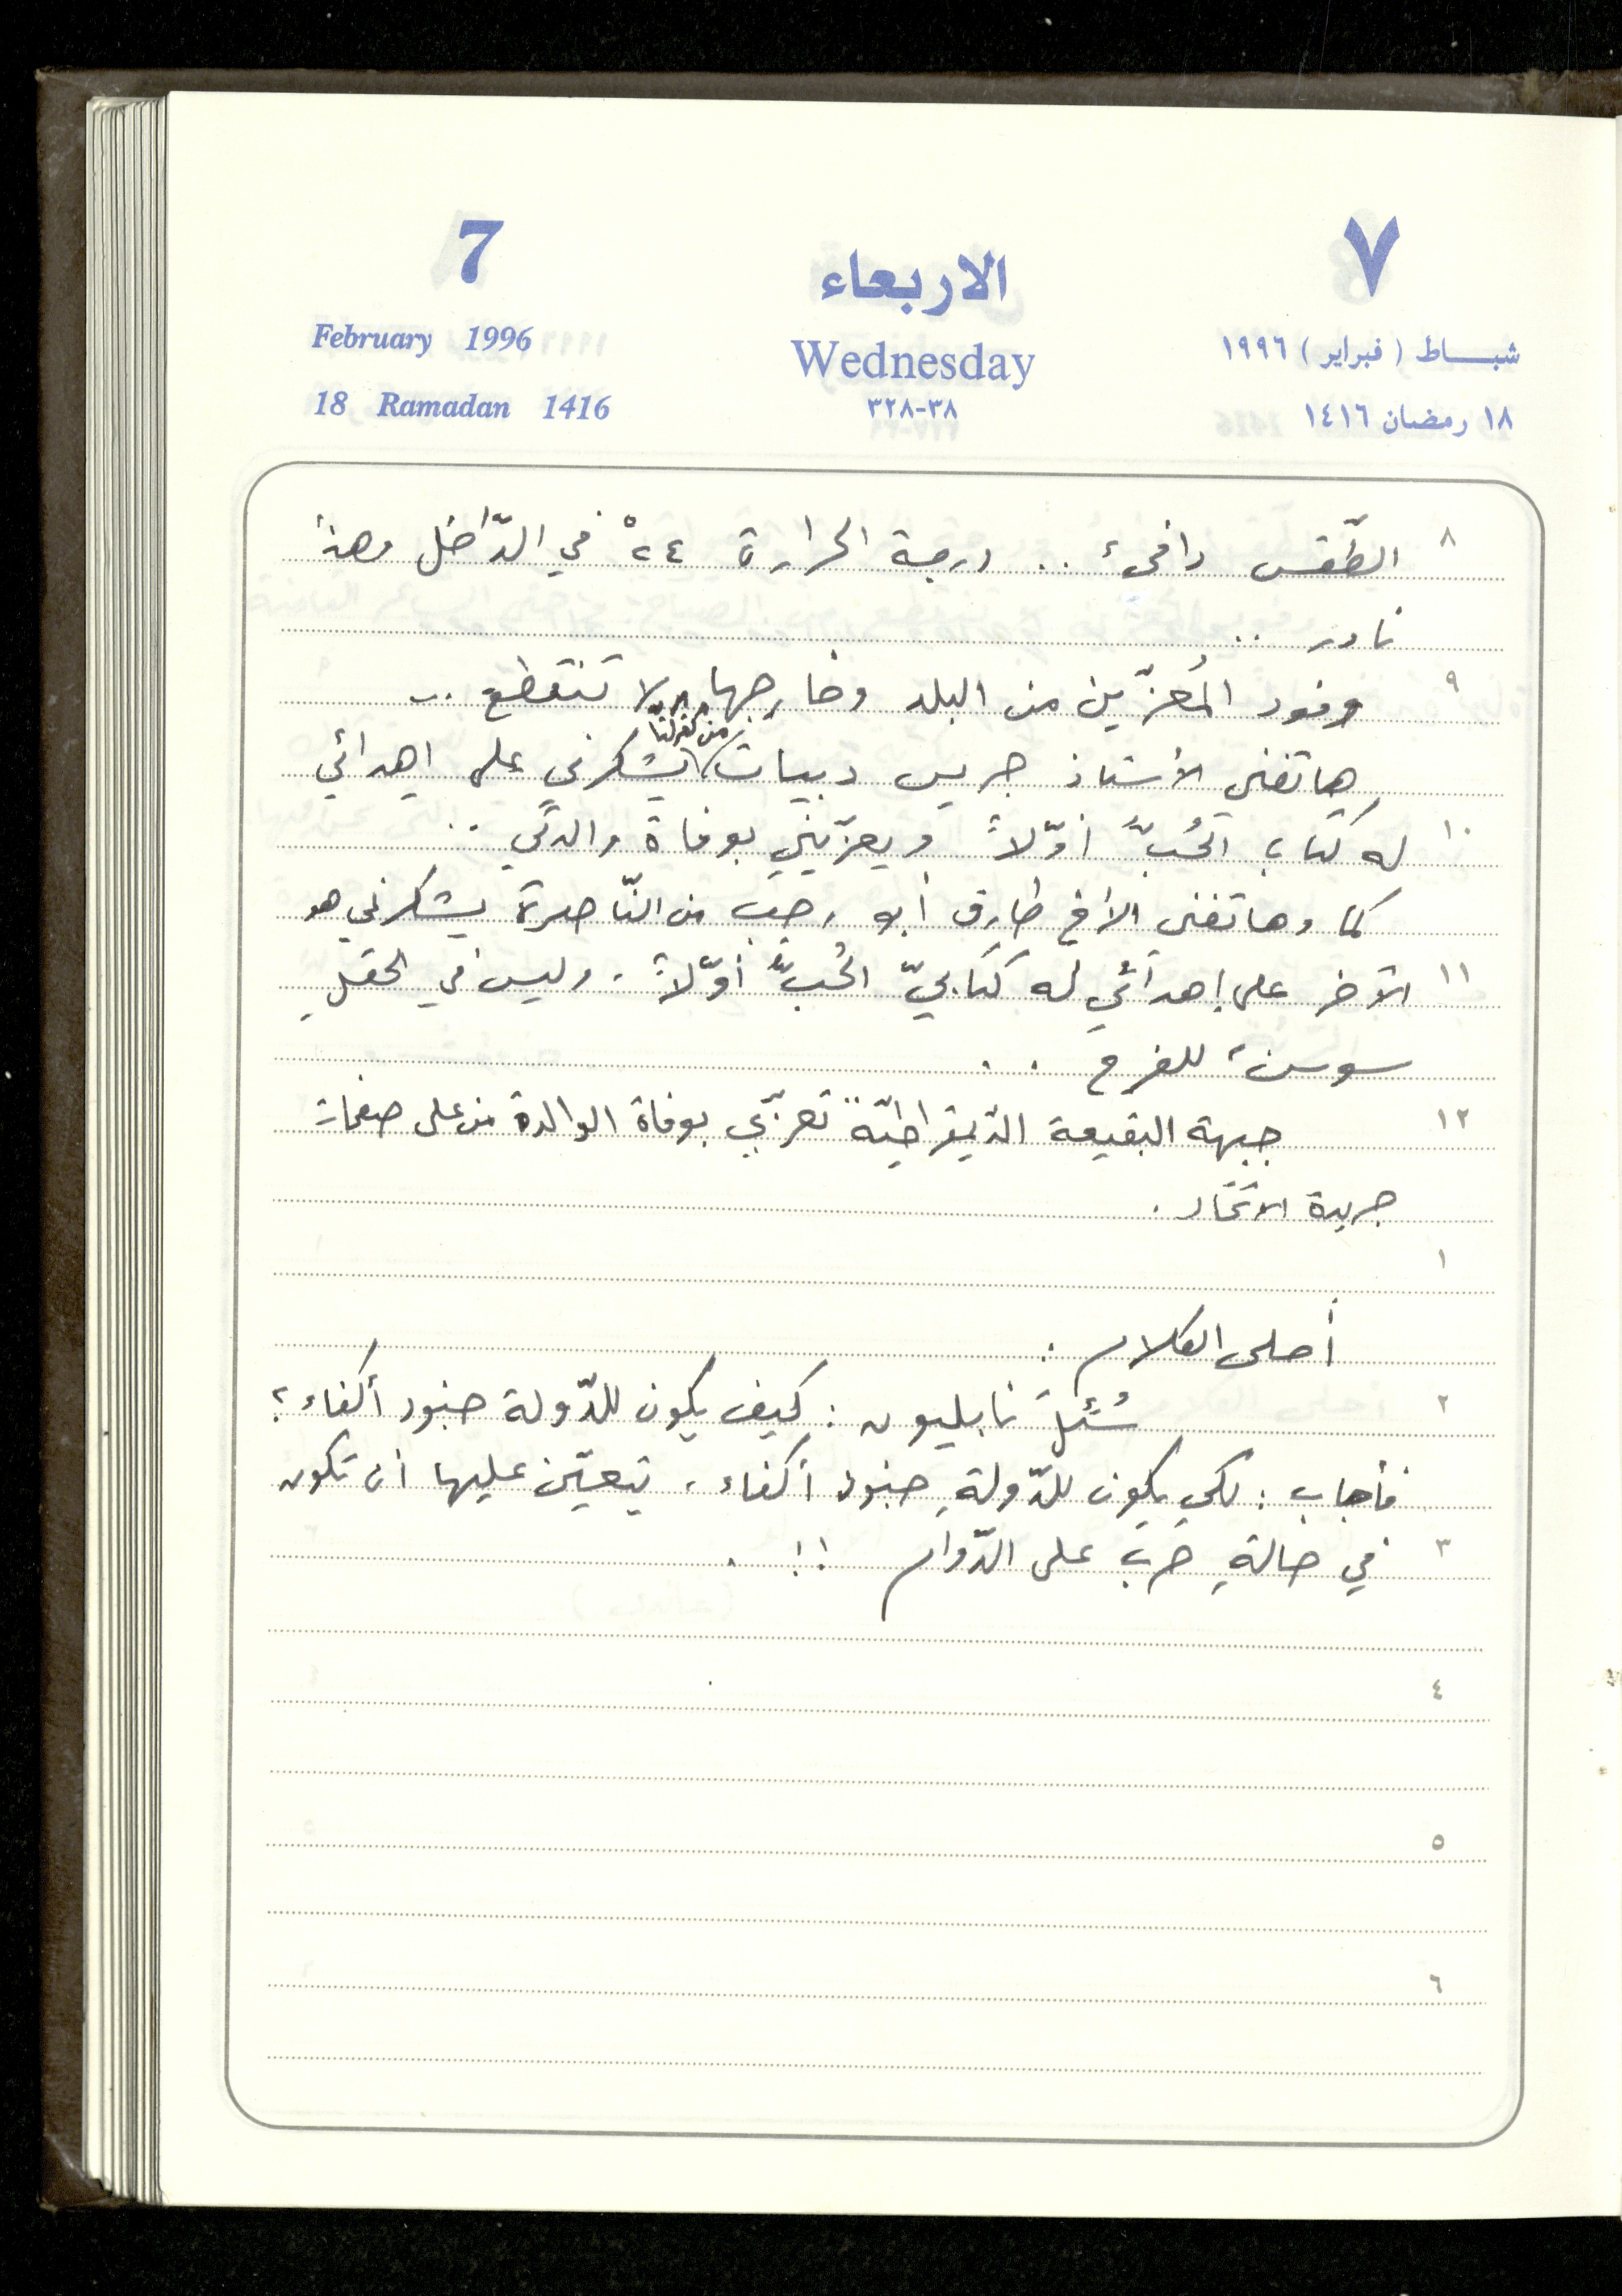 7
الاربعاء
٧
February 1996
Wednesday
شباط ( فبراير ) ١٩٩٦
18 Ramadan 1416
٣٨-٣٢٨
١٨ رمضان ١٤١٦
٨ الطّقس دافىء .. درجة الحرارة ٢٤° في الدّاخل وهذا
نادر ..
٩ وفود المُعزّين من البلد وخارجها لا تنقطع ..
من كفركنّا
هاتفني الأستاذ جريس دبيات يشكرني على إهدائي
١٠ له كتاب الحُبّ أوّلاً ويعزّيني بوفاة والدتي ..
كما وهاتفني الأخ طارق أبو رجب من النّاصرة يشكرني هو
١١ الآخر على إهدائي له كتابيّ الحُبّ أوّلاً، وليس في الحقلِ
سوسنٌ للفرح ..
١٢ جبهة البقيعة الدّيمقراطيّة تعزّي بوفاة الوالدة من على صفحات
جريدة الاتّحاد .
١
أحلى الكلام :
٢ سُئلَ نابليون : كيف يكون للدّولة جنود أكفاء ؟
فأجاب : لكي يكون للدّولةِ جنود أكفاء ، يتعيّن عليها أن تكون
٣ في حالةِ حَرب على الدّوام !! .
٤
٥
٦